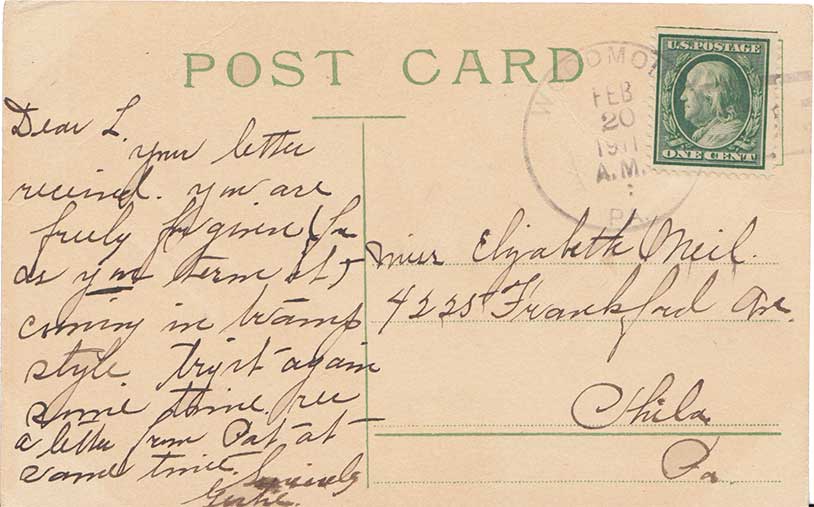 POST CARD
U.S. POSTAGE
ONE CENT
WOODMO
FEB
20
1911
A.M.
PA.
Dear L
your letter
received. you are
freely forgiven (
as you term it)
coming in tramp
style try it again
some time. rec
a letter from Pat at
same time. Sincerely
Miss Elizabeth Neil.
4225 Frankford Ave.
Phila
Pa.